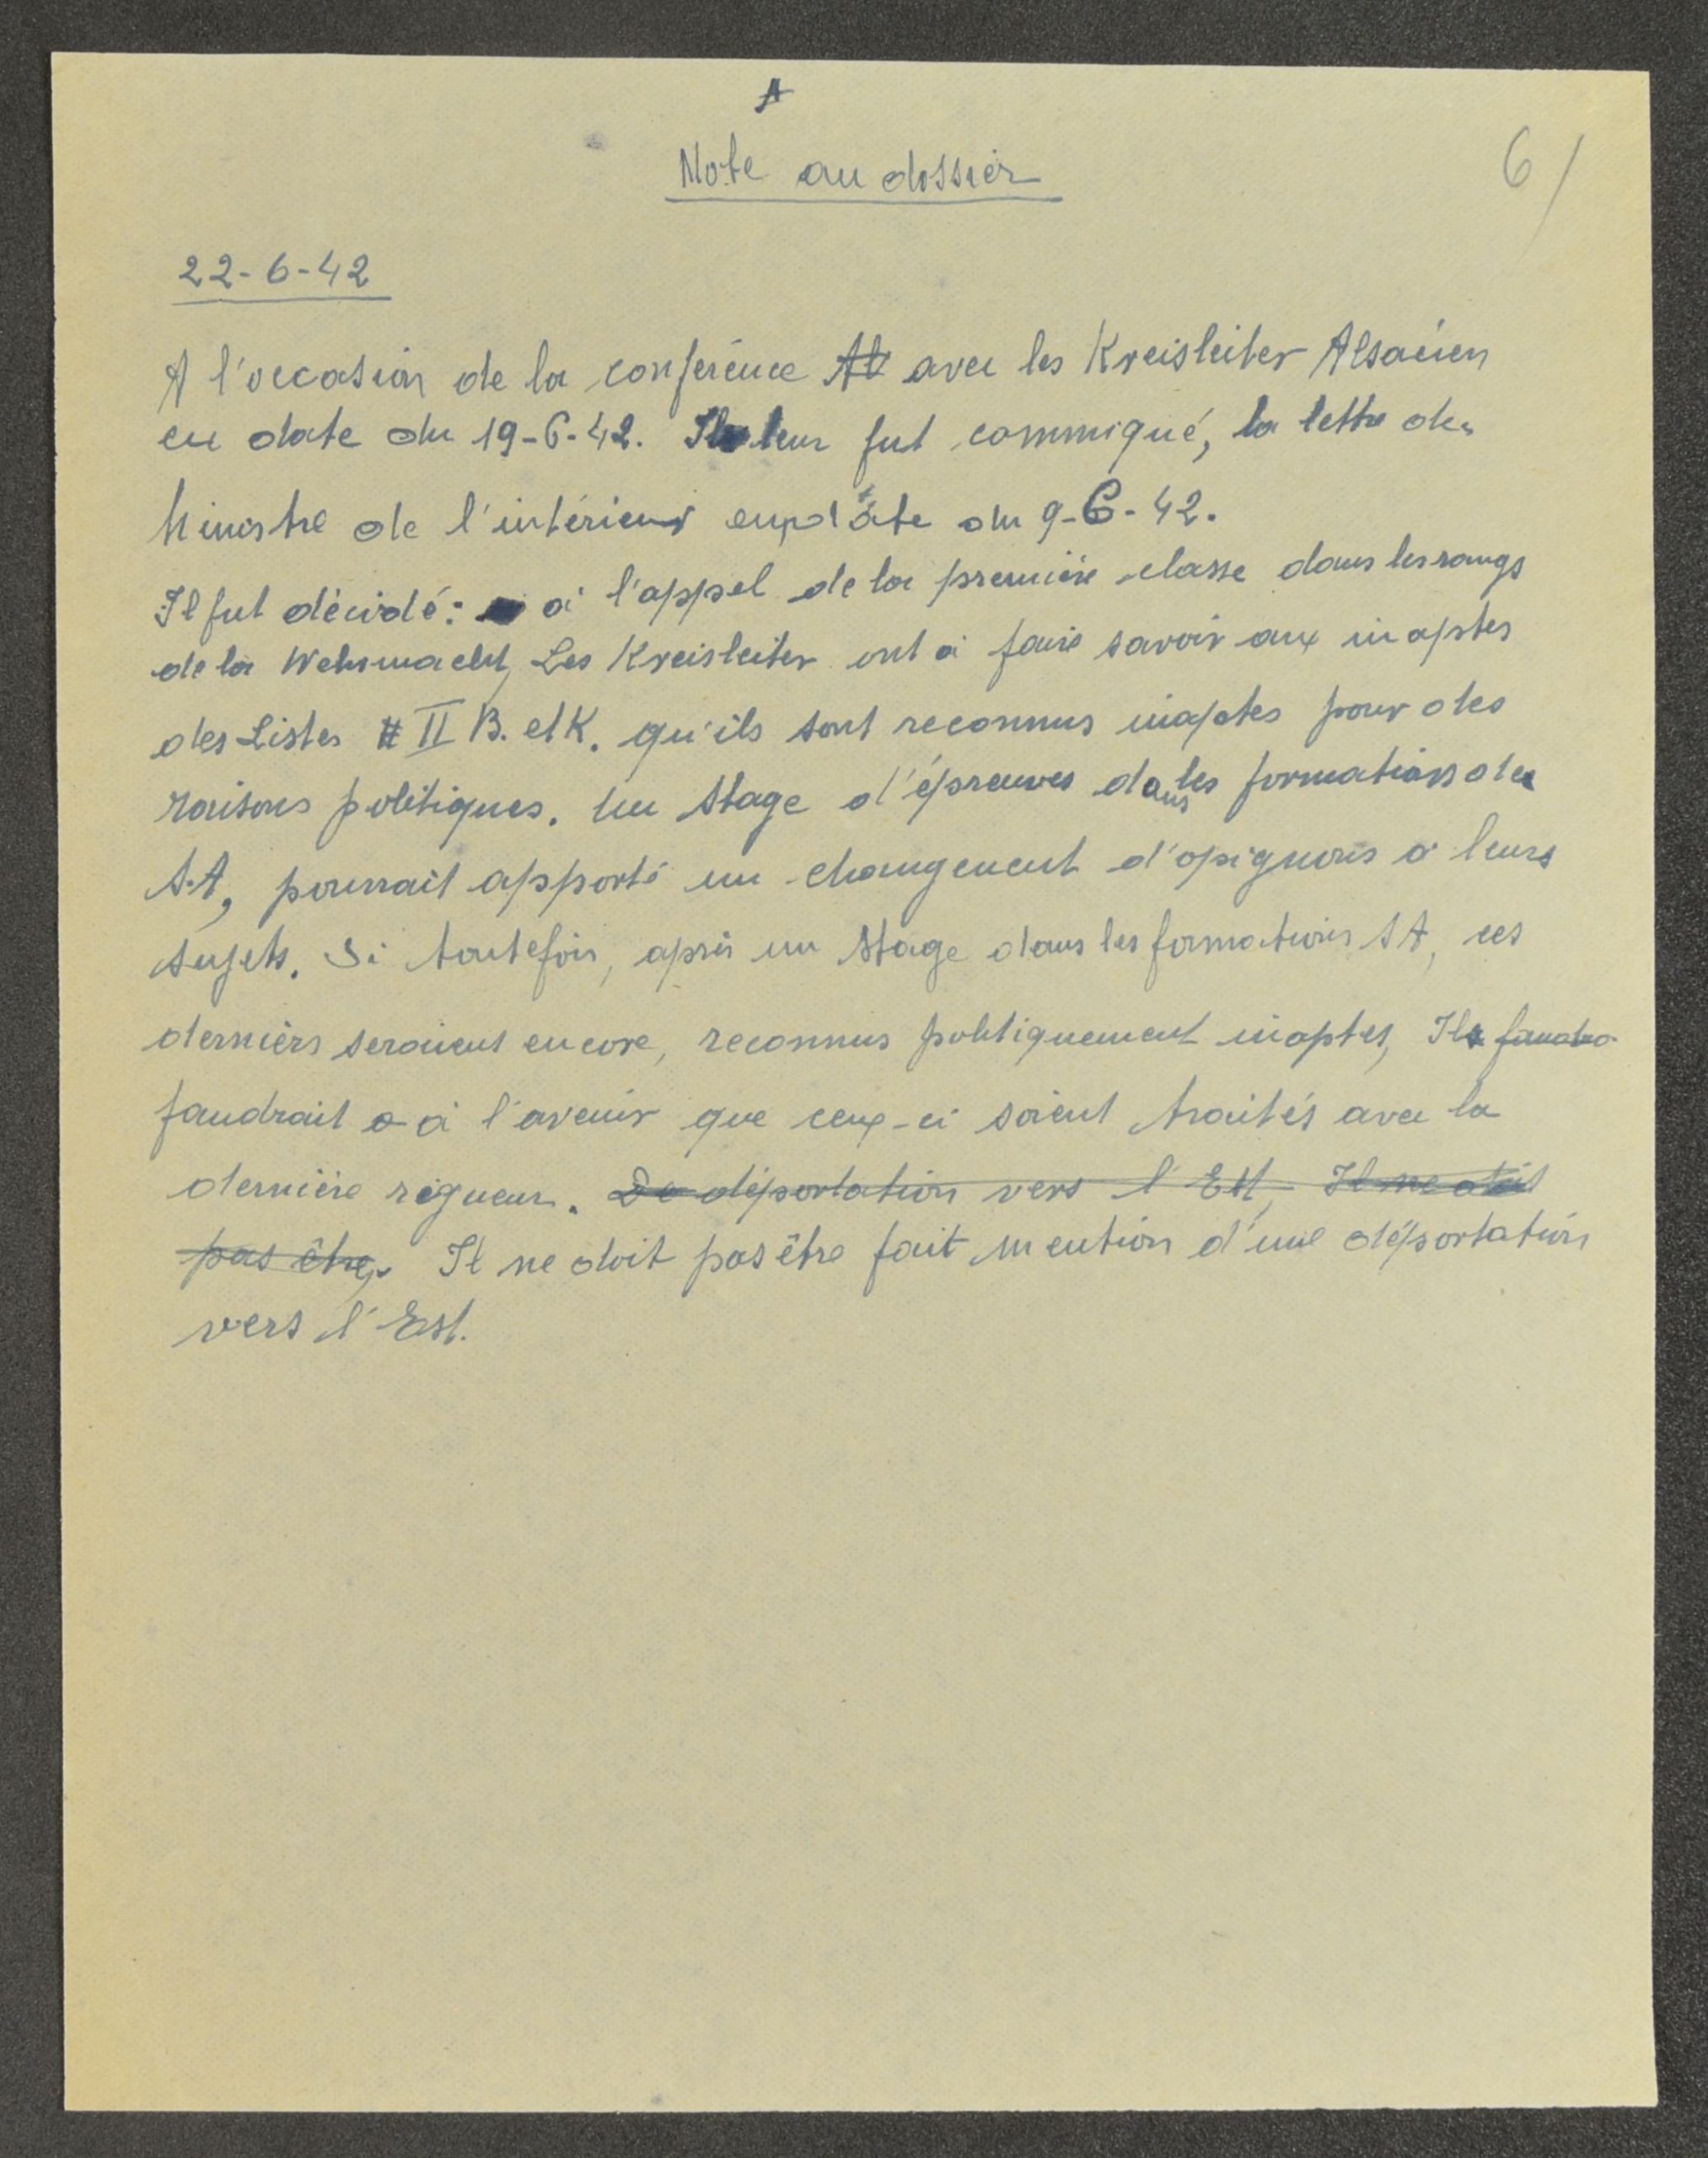 A
Note au dossier
6/
22-6-42
A l'occasion de la conférence Al avec les Kreisleiter Alsacien
en date du 19-6-42. Il leur fut commiqué, la lettre du
Ministre de l'intérieur en date du 9-6-42.
Il fut décidé: à l'appel de la première classe dans les rangs
de la Wehrmacht, Les Kreisleiter ont à faire savoir aux inaptes
des Listes II B. et K. qu'ils sont reconnus inaptes pour des
raisons politiques. Un stage d'épreuves dans les formations des
S.A, pourrait apporté un changement d'opignons à leurs
sujets. Si toutefois, après un stage dans les formations SA, ces
derniers seraient encore, reconnus politiquement inaptes, Il faudra
faudrait à l'avenir que ceux-ci soient traités avec la
dernière rigueur. De déportation vers l'Est, Il ne doit
pas être, Il ne doit pas être fait mention d'une déportation
vers l'Est.